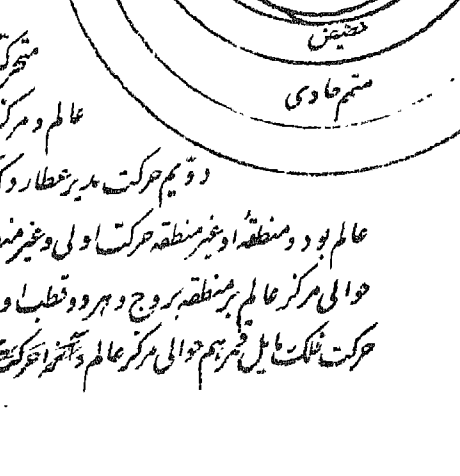 حضیض
متمم حاوی
متحرک
عالم و مرکز
دویم حرکت مدیر عطارد
عالم بود و منطقهٔ او غیر منطقه حرکت اولی و غیر
حوالی مرکز عالم بر منطقه بروج و هر دو قطب او
حرکت فلک مایل قمر هم حوالی مرکز عالم و آنرا حرکت